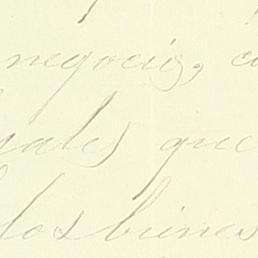 negocio, c
uales que
los bienes